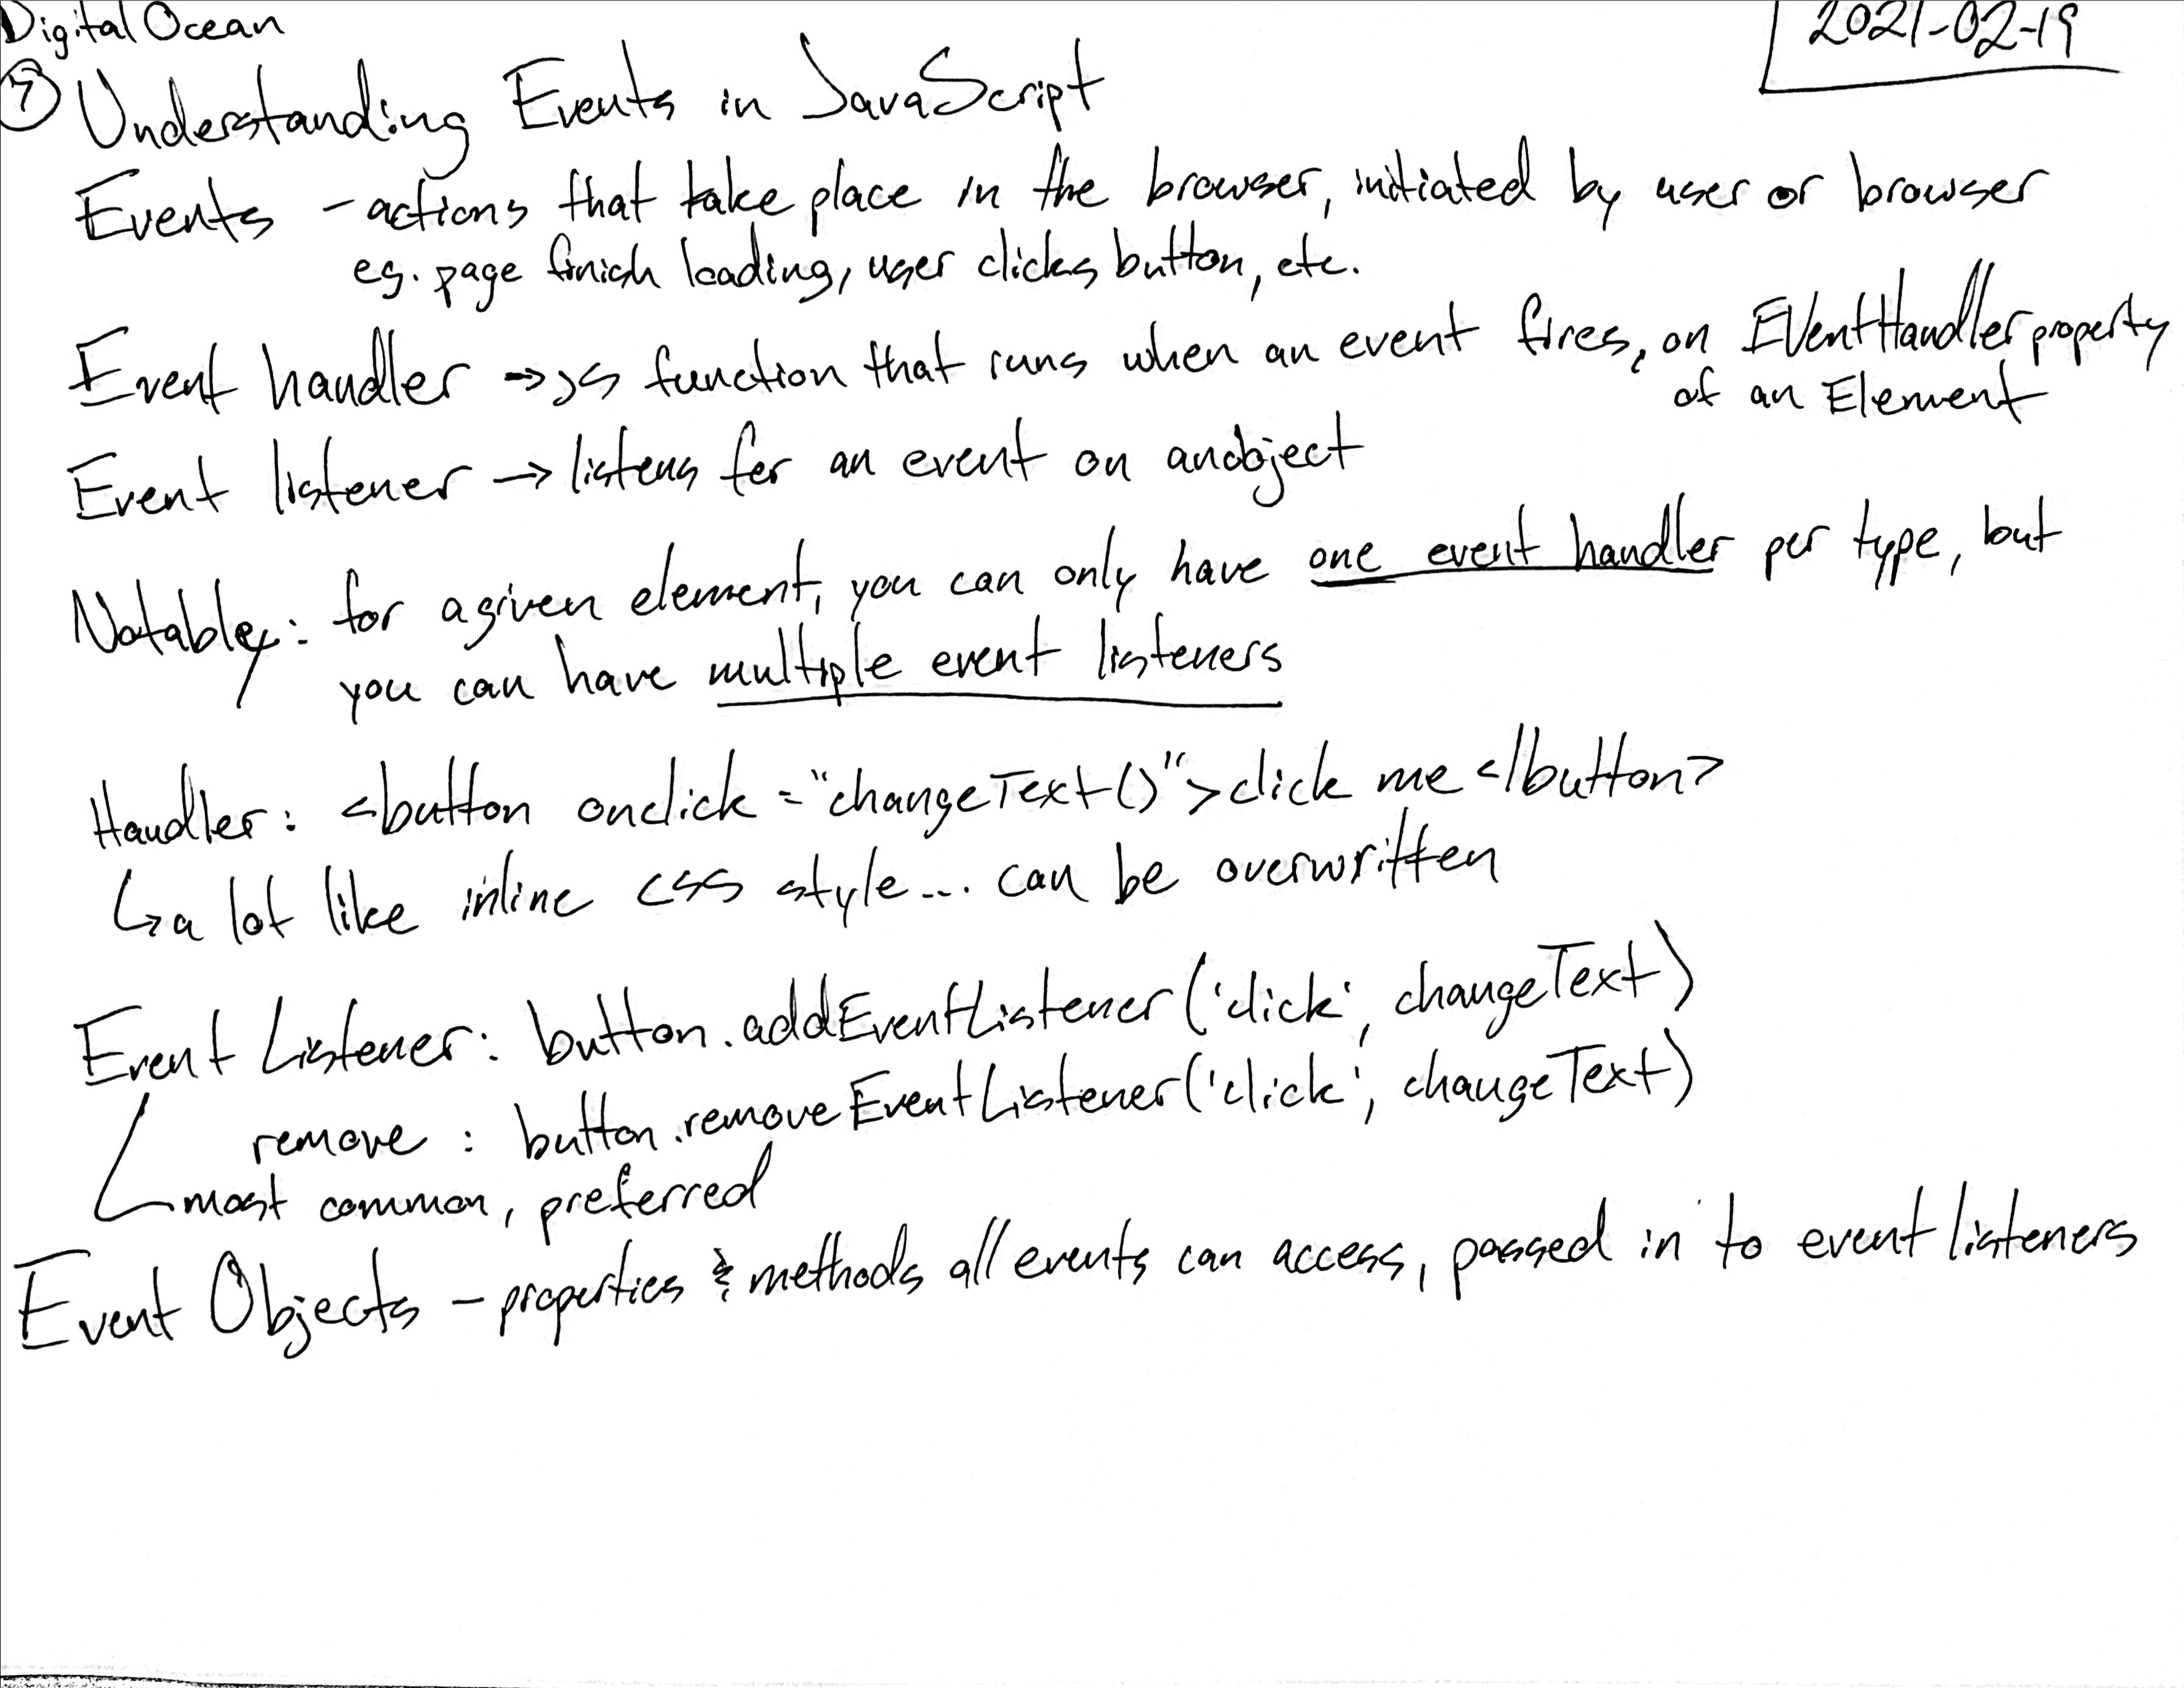 DigitalOcean
2021-02-19
⑦ Understanding Events in JavaScript
Events - actions that take place in the browser, initiated by user or browser
eg. page finish loading, user clicks button, etc.
Event handler → JS function that runs when an event fires, on EventHandler property
of an Element
Event listener → listens for an event on an object
Notabley: for a given element, you can only have one event handler per type, but
you can have multiple event listeners
Handler: <button onclick = "changeText()">click me </button>
↳ a lot like inline css style... can be overwritten
Event Listener: button.addEventListener('click', changeText)
remove : button.removeEventListener('click', changeText)
most common, preferred
Event Objects - properties & methods all events can access, passed in to event listeners